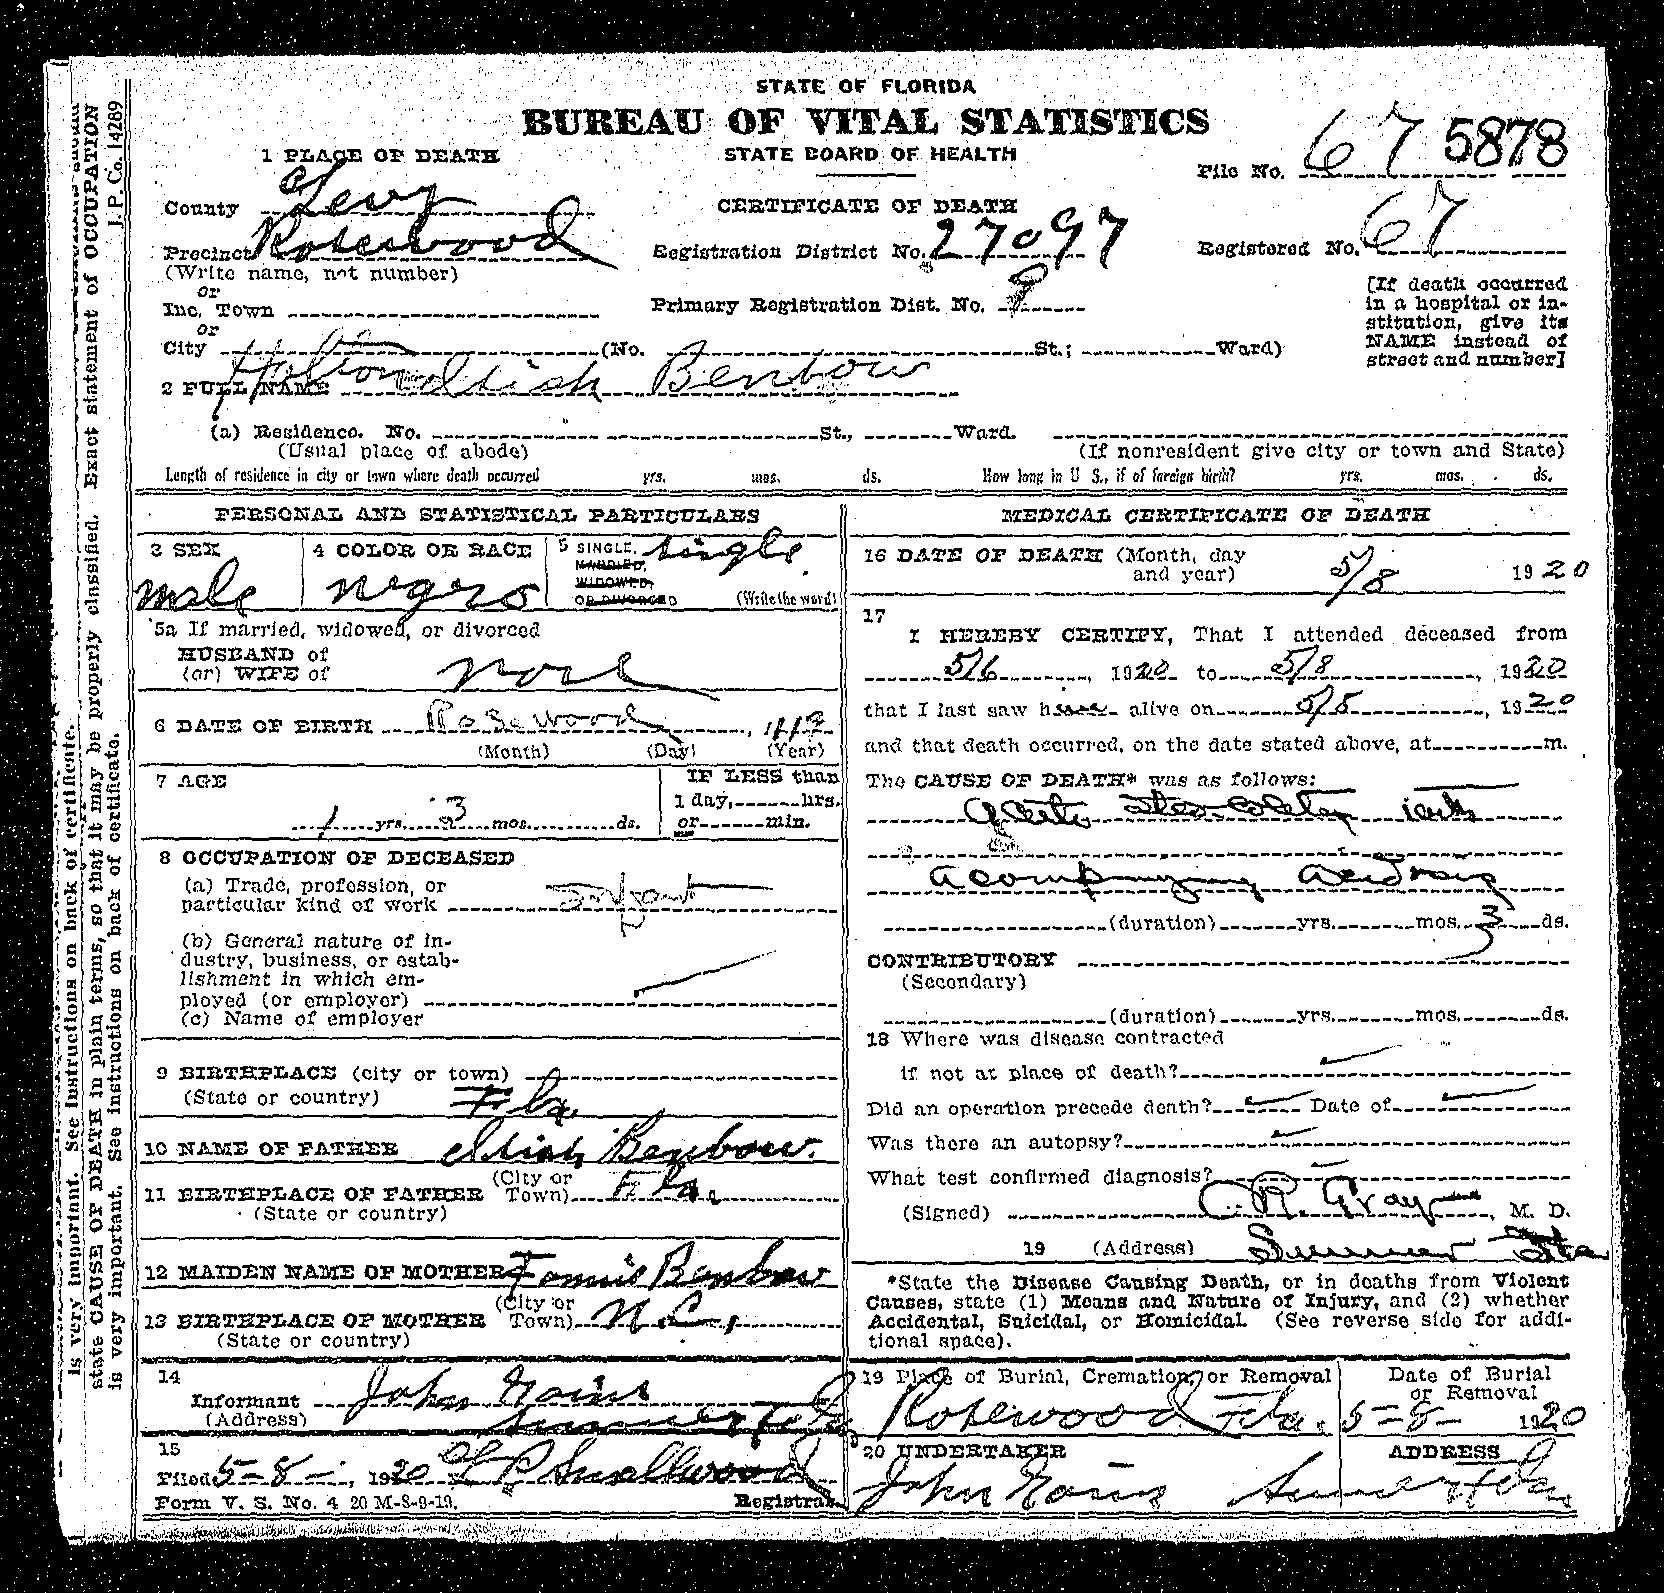 STATE OF FLORIDA
BUREAU OF VITAL STATISTICS
STATE BOARD OF HEALTH
CERTIFICATE OF DEATH
File No. 67 5878
1 PLACE OF DEATH
County Levy
Precinct Rosewood
(Write name, not number)
Registration District No. 27097
Registered No. 67
or
Inc. Town
Primary Registration Dist. No. 8
or
City (No. St.; Ward)
[If death occurred
in a hospital or in-
stitution, give its
NAME instead of
street and number]
2 FULL NAME Benbow
(a) Residence. No. St., Ward.
(Usual place of abode) (If nonresident give city or town and State)
Length of residence in city or town where death occurred yrs. mos. ds. How long in U S., if of foreign birth? yrs. mos. ds.
PERSONAL AND STATISTICAL PARTICULARS
3 SEX
male
4 COLOR OR RACE
negro
5 SINGLE, single
MARRIED,
WIDOWED,
OR DIVORCED (Write the word)
5a If married, widowed, or divorced
HUSBAND of
(or) WIFE of none
6 DATE OF BIRTH Rosewood,
(Month) (Day) (Year)
7 AGE
1 yrs. 3 mos. ds.
IF LESS than
1 day, hrs.
or min.
8 OCCUPATION OF DECEASED
(a) Trade, profession, or
particular kind of work Infant
(b) General nature of in-
dustry, business, or estab-
lishment in which em-
ployed (or employer)
(c) Name of employer
9 BIRTHPLACE (city or town)
(State or country) Fla.
10 NAME OF FATHER Benbow.
11 BIRTHPLACE OF FATHER (City or Town) Fla.
(State or country)
12 MAIDEN NAME OF MOTHER Fannie Benbow
13 BIRTHPLACE OF MOTHER (City or Town) N.C.
(State or country)
14
Informant John
(Address) Sumner Fla
15
Filed 5-8-, 1920 Smallwood
Registrar.
Form V. S. No. 4 20 M-8-9-19.
MEDICAL CERTIFICATE OF DEATH
16 DATE OF DEATH (Month, day
and year) 5/8 1920
17
I HEREBY CERTIFY, That I attended deceased from
5/6, 1920 to 5/8, 1920
that I last saw h alive on 5/8, 1920
and that death occurred, on the date stated above, at m.
The CAUSE OF DEATH* was as follows:
with
acompanying
(duration) yrs. mos. 3 ds.
CONTRIBUTORY
(Secondary)
(duration) yrs. mos. ds.
18 Where was disease contracted
if not at place of death?
Did an operation precede death? Date of
Was there an autopsy?
What test confirmed diagnosis?
(Signed) C. R. Gray, M. D.
19 (Address) Sumner Fla
*State the Disease Causing Death, or in deaths from Violent
Causes, state (1) Means and Nature of Injury, and (2) whether
Accidental, Suicidal, or Homicidal. (See reverse side for addi-
tional space).
19 Place of Burial, Cremation, or Removal
Rosewood Fla.
Date of Burial
or Removal
5-8- 1920
20 UNDERTAKER
John
ADDRESS
Sumner Fla
is very important. See instructions on back of certificate.
state CAUSE OF DEATH in plain terms, so that it may be properly classified. Exact statement of OCCUPATION
is very important. See instructions on back of certificate.
J. P. Co. 14289